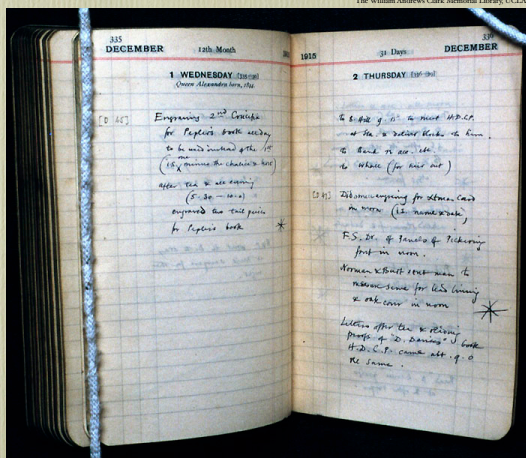 The William Andrews Clark Memorial Library, UCLA
335
DECEMBER 12th Month
1 WEDNESDAY [335-30]
Queen Alexandra born, 1844
Engraving 2nd Crucifix
for Pepler's book all day
to be used instead of the 1st
(i.e. one minus the chalice & host)
after tea & all evening
(5.30 — 10.0)
engraved two tail pieces
for Pepler's book
1915 31 Days DECEMBER
2 THURSDAY
to meet H.D.C.P.
at tea & deliver blocks to him.
to Bank
Did some engraving for Xmas card
in morn (i.e. name & date)
F.S. Dr. of Panels of Pickering
font in morn.
Norman & Burt sent man to
measure for lead lining
& oak cover in morn
Letters after tea & evening
proofs of "D. Davies" book
H.D.C.P. came abt. 9.0
re same.